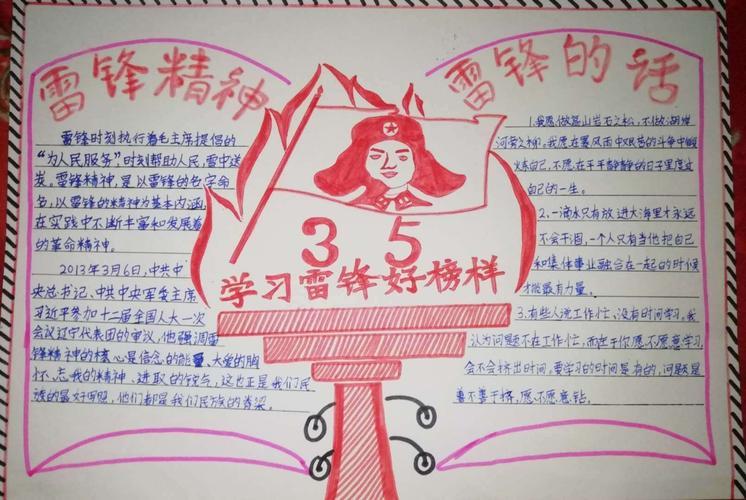 雷锋精神
雷锋时刻执行着毛主席提倡的
“为人民服务”,时刻帮助人民,雪中送
炭。雷锋精神,是以雷锋的名字命
名,以雷锋的精神为基本内涵,
在实践中不断丰富和发展着
的革命精神。
2013年3月6日,中共中
央总书记、中共中央军委主席
习近平参加十二届全国人大一次
会议辽宁代表团的审议,他强调雷
锋精神的核心是信念的能量、大爱的胸
怀、忘我的精神、进取的锐气,这也正是我们民
族的最好写照,他们都是我们民族的脊梁。
3 5
学习雷锋好榜样
雷锋的话
1.我愿做高山岩石之松,不做湖岸
河旁之柳。我愿在暴风雨中艰苦的斗争中锻
炼自己,不愿在平平静静的日子里度过
自己的一生。
2、一滴水只有放进大海里才永远
不会干涸,一个人只有当他把自己
和集体事业融合在一起的时候
才能最有力量。
3.有些人说工作忙,没有时间学习。我
认为问题不在工作忙,而在于你愿不愿意学习
会不会挤出时间。要学习的时间是有的,问题是
善不善于挤,愿不愿意钻。